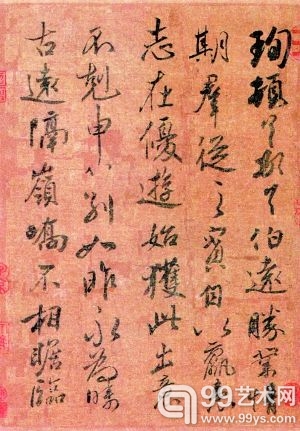 珣頓首頓首伯遠勝業情
期羣從之寶自以羸患
志在優遊始獲此出意
不剋申分別如昨永為疇
古遠隔嶺嶠不相瞻臨
99艺术网
www.99ys.com